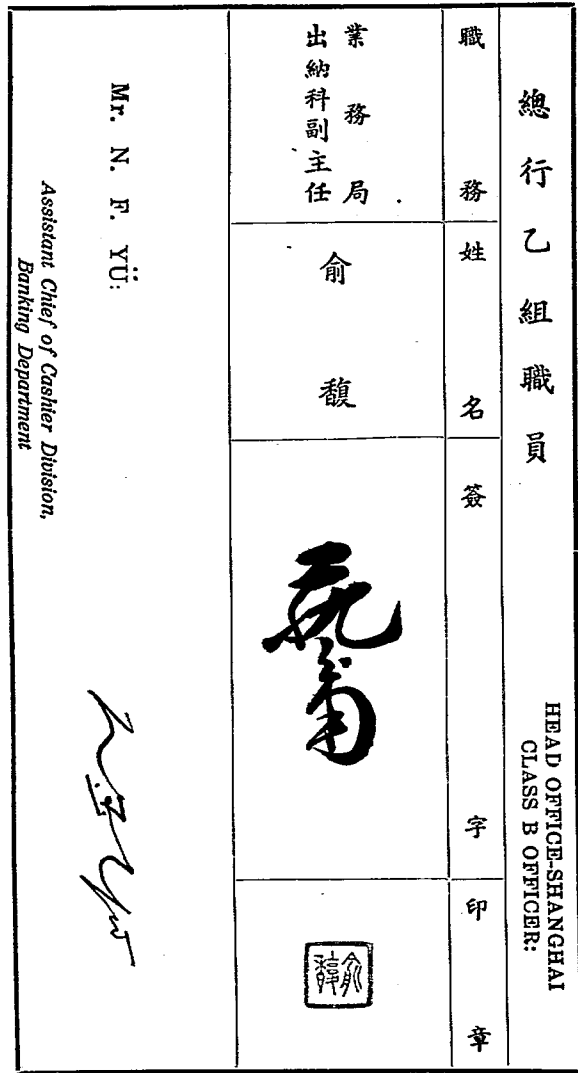 總行乙組職員
HEAD OFFICE-SHANGHAI
CLASS B OFFICER:
職務
姓名
簽字
印章
業務局
出納科副主任
俞馥
俞馥
Mr. N. F. YÜ:
Assistant Chief of Cashier Division,
Banking Department